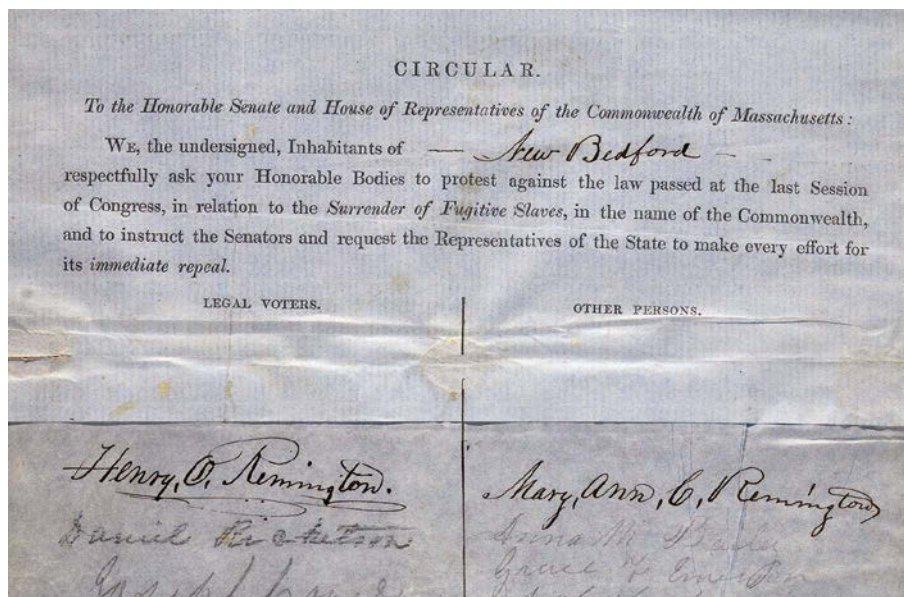 CIRCULAR.
To the Honorable Senate and House of Representatives of the Commonwealth of Massachusetts:
WE, the undersigned, Inhabitants of — New Bedford —
respectfully ask your Honorable Bodies to protest against the law passed at the last Session
of Congress, in relation to the Surrender of Fugitive Slaves, in the name of the Commonwealth,
and to instruct the Senators and request the Representatives of the State to make every effort for
its immediate repeal.
LEGAL VOTERS.
OTHER PERSONS.
Henry, O, Remington.
Mary, Ann, C, Remington
Daniel Ricketson
Anna M Bailey
Grace F Emerson
Joseph